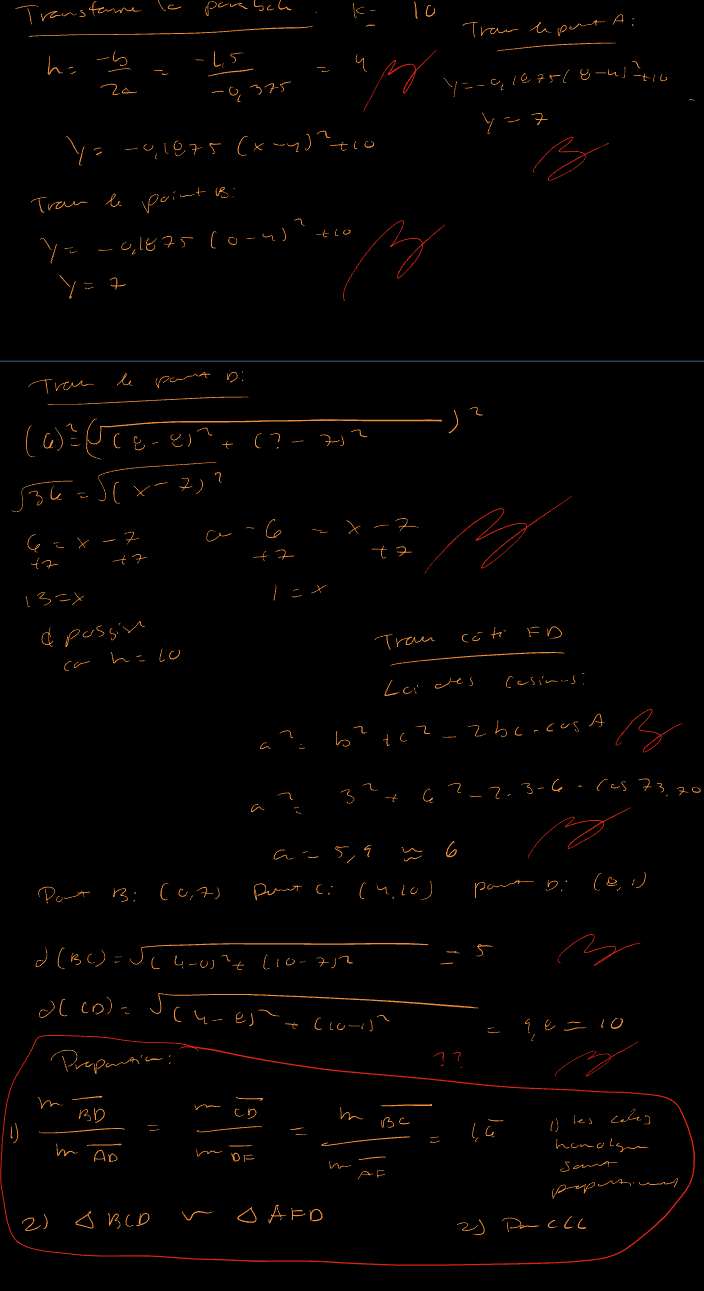 Transforme la parabole : k = 10
h = -b/2a = -1,5/-0,375 = 4
y = -0,1875 (x-4)² +10
Trou le point A:
y = -0,1875 (8-4)² +10
y = 7
Trou le point B:
y = -0,1875 (0-4)² +10
y = 7
Trou le point D:
(6)² = (√(8-8)² + (?-7)²)²
√36 = √(x-7)²
6 = x-7 ou -6 = x-7
+7 +7 +7 +7
13 = x 1 = x
car h = 10
Trou côté FD
Loi des cosinus:
a² = b² + c² - 2bc · cos A
a² = 3² + 6² - 2·3·6 · cos 73,70
a = 5,9 ≈ 6
Point B: (0,7) Point C: (4,10) point D: (8,1)
d(BC) = √(4-0)² + (10-7)² = 5
d(CD) = √(4-8)² + (10-1)² = 9,8 = 10
Proportion: ??
1) m BD/m AD = m CD/m DF = m BC/m AF = 1,6̄
1) les côtés
homologue
sont
proportionnels
2) △BCD ~ △AFD 2) Par CCC